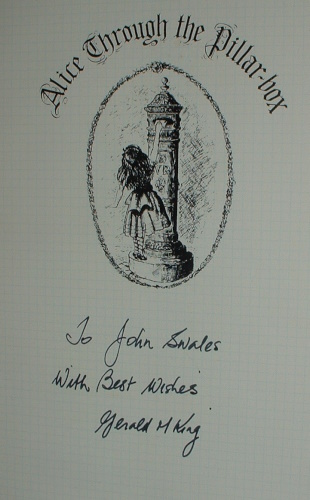 Alice Through the Pillar-box
To John Swales
With Best Wishes
Gerald M King